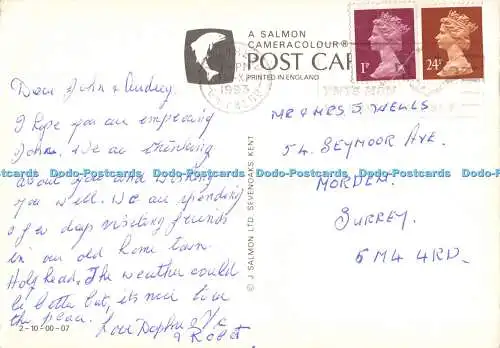 A SALMON
CAMERACOLOUR®
POST CAR
PRINTED IN ENGLAND
1993
1P
24P
Dear John & Audrey.
I hope you are improving
John. We are thinking
about you and wishing
you well. We are spending
a few days visiting friends
in our old home town.
Holyhead. The weather could
be better but, it's nice
the peace. Love Daphne
& Robert
MR & MRS J. WELLS
54. SEYMOOR AVE.
MORDEN.
SURREY.
SM4 4RD.
© J. SALMON LTD. SEVENOAKS, KENT
2-10-00-07
Dodo-Postcards Dodo-Postcards Dodo-Postcards Dodo-Postcards Dodo-Postcards Dodo-Postcards